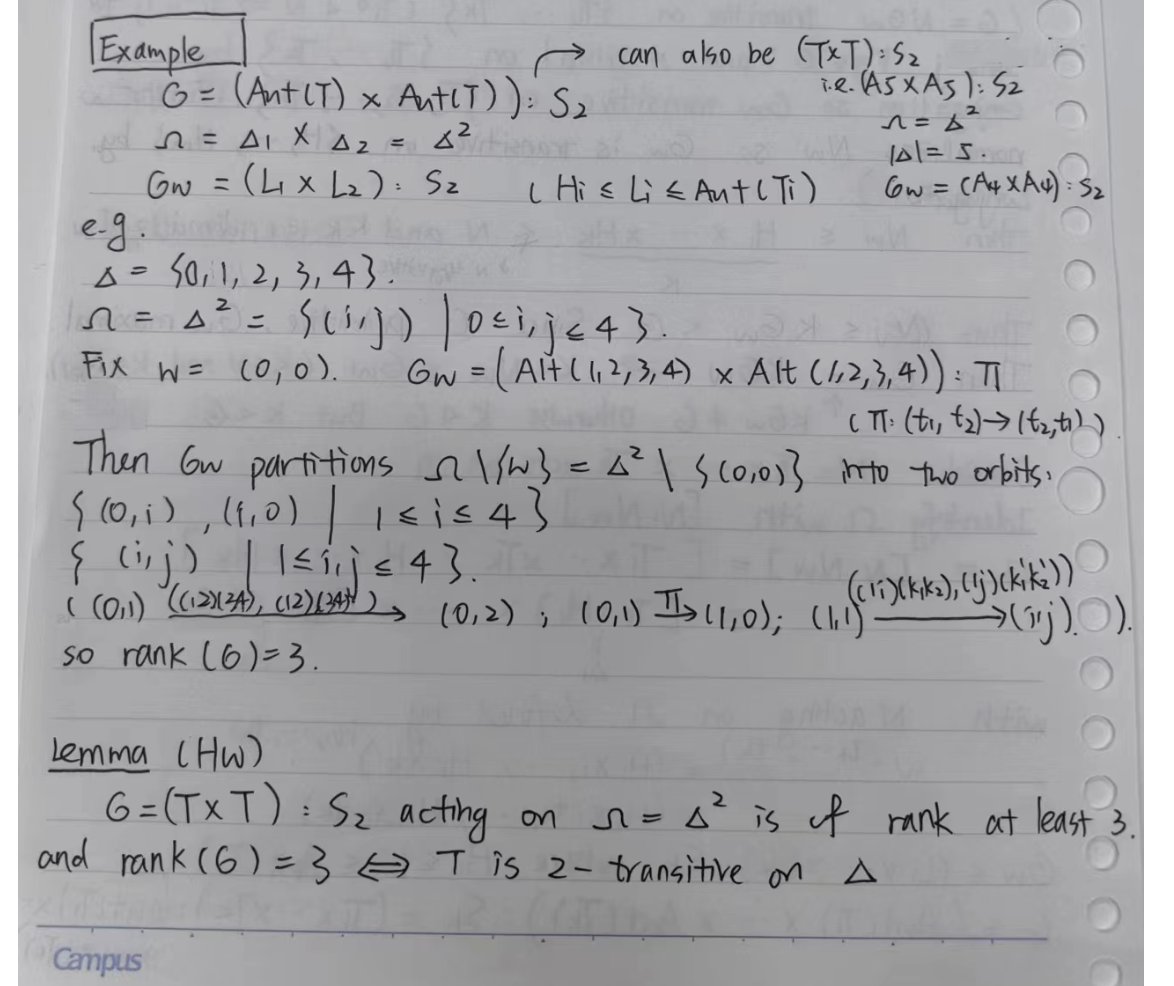 Example
→ can also be (T×T):S₂
G = (Aut(T) × Aut(T)):S₂
i.e. (A5×A5):S₂
Ω = Δ₁ × Δ₂ = Δ²
Ω = Δ²
|Δ| = 5.
Gω = (L₁ × L₂):S₂ (Hi ≤ Li ≤ Aut(Ti))
Gω = (A4×A4):S₂
e.g.
Δ = {0, 1, 2, 3, 4}.
Ω = Δ² = {(i,j) | 0≤i,j≤4}.
Fix ω = (0,0). Gω = (Alt(1,2,3,4) × Alt(1,2,3,4)):π
(π: (t₁, t₂)→(t₂,t₁))
Then Gω partitions Ω\{ω} = Δ² \ {(0,0)} into two orbits:
{(0,i), (i,0) | 1≤i≤4}
{(i,j) | 1≤i,j≤4}.
((0,1) —((12)(34), (12)(34))→ (0,2); (0,1) —π→ (1,0); (1,1) —((1i)(k₁k₂),(1j)(k₁'k₂'))→ (i,j).).
so rank(G)=3.
Lemma (HW)
G=(T×T):S₂ acting on Ω = Δ² is of rank at least 3.
and rank(G)=3 ⇔ T is 2-transitive on Δ
Campus